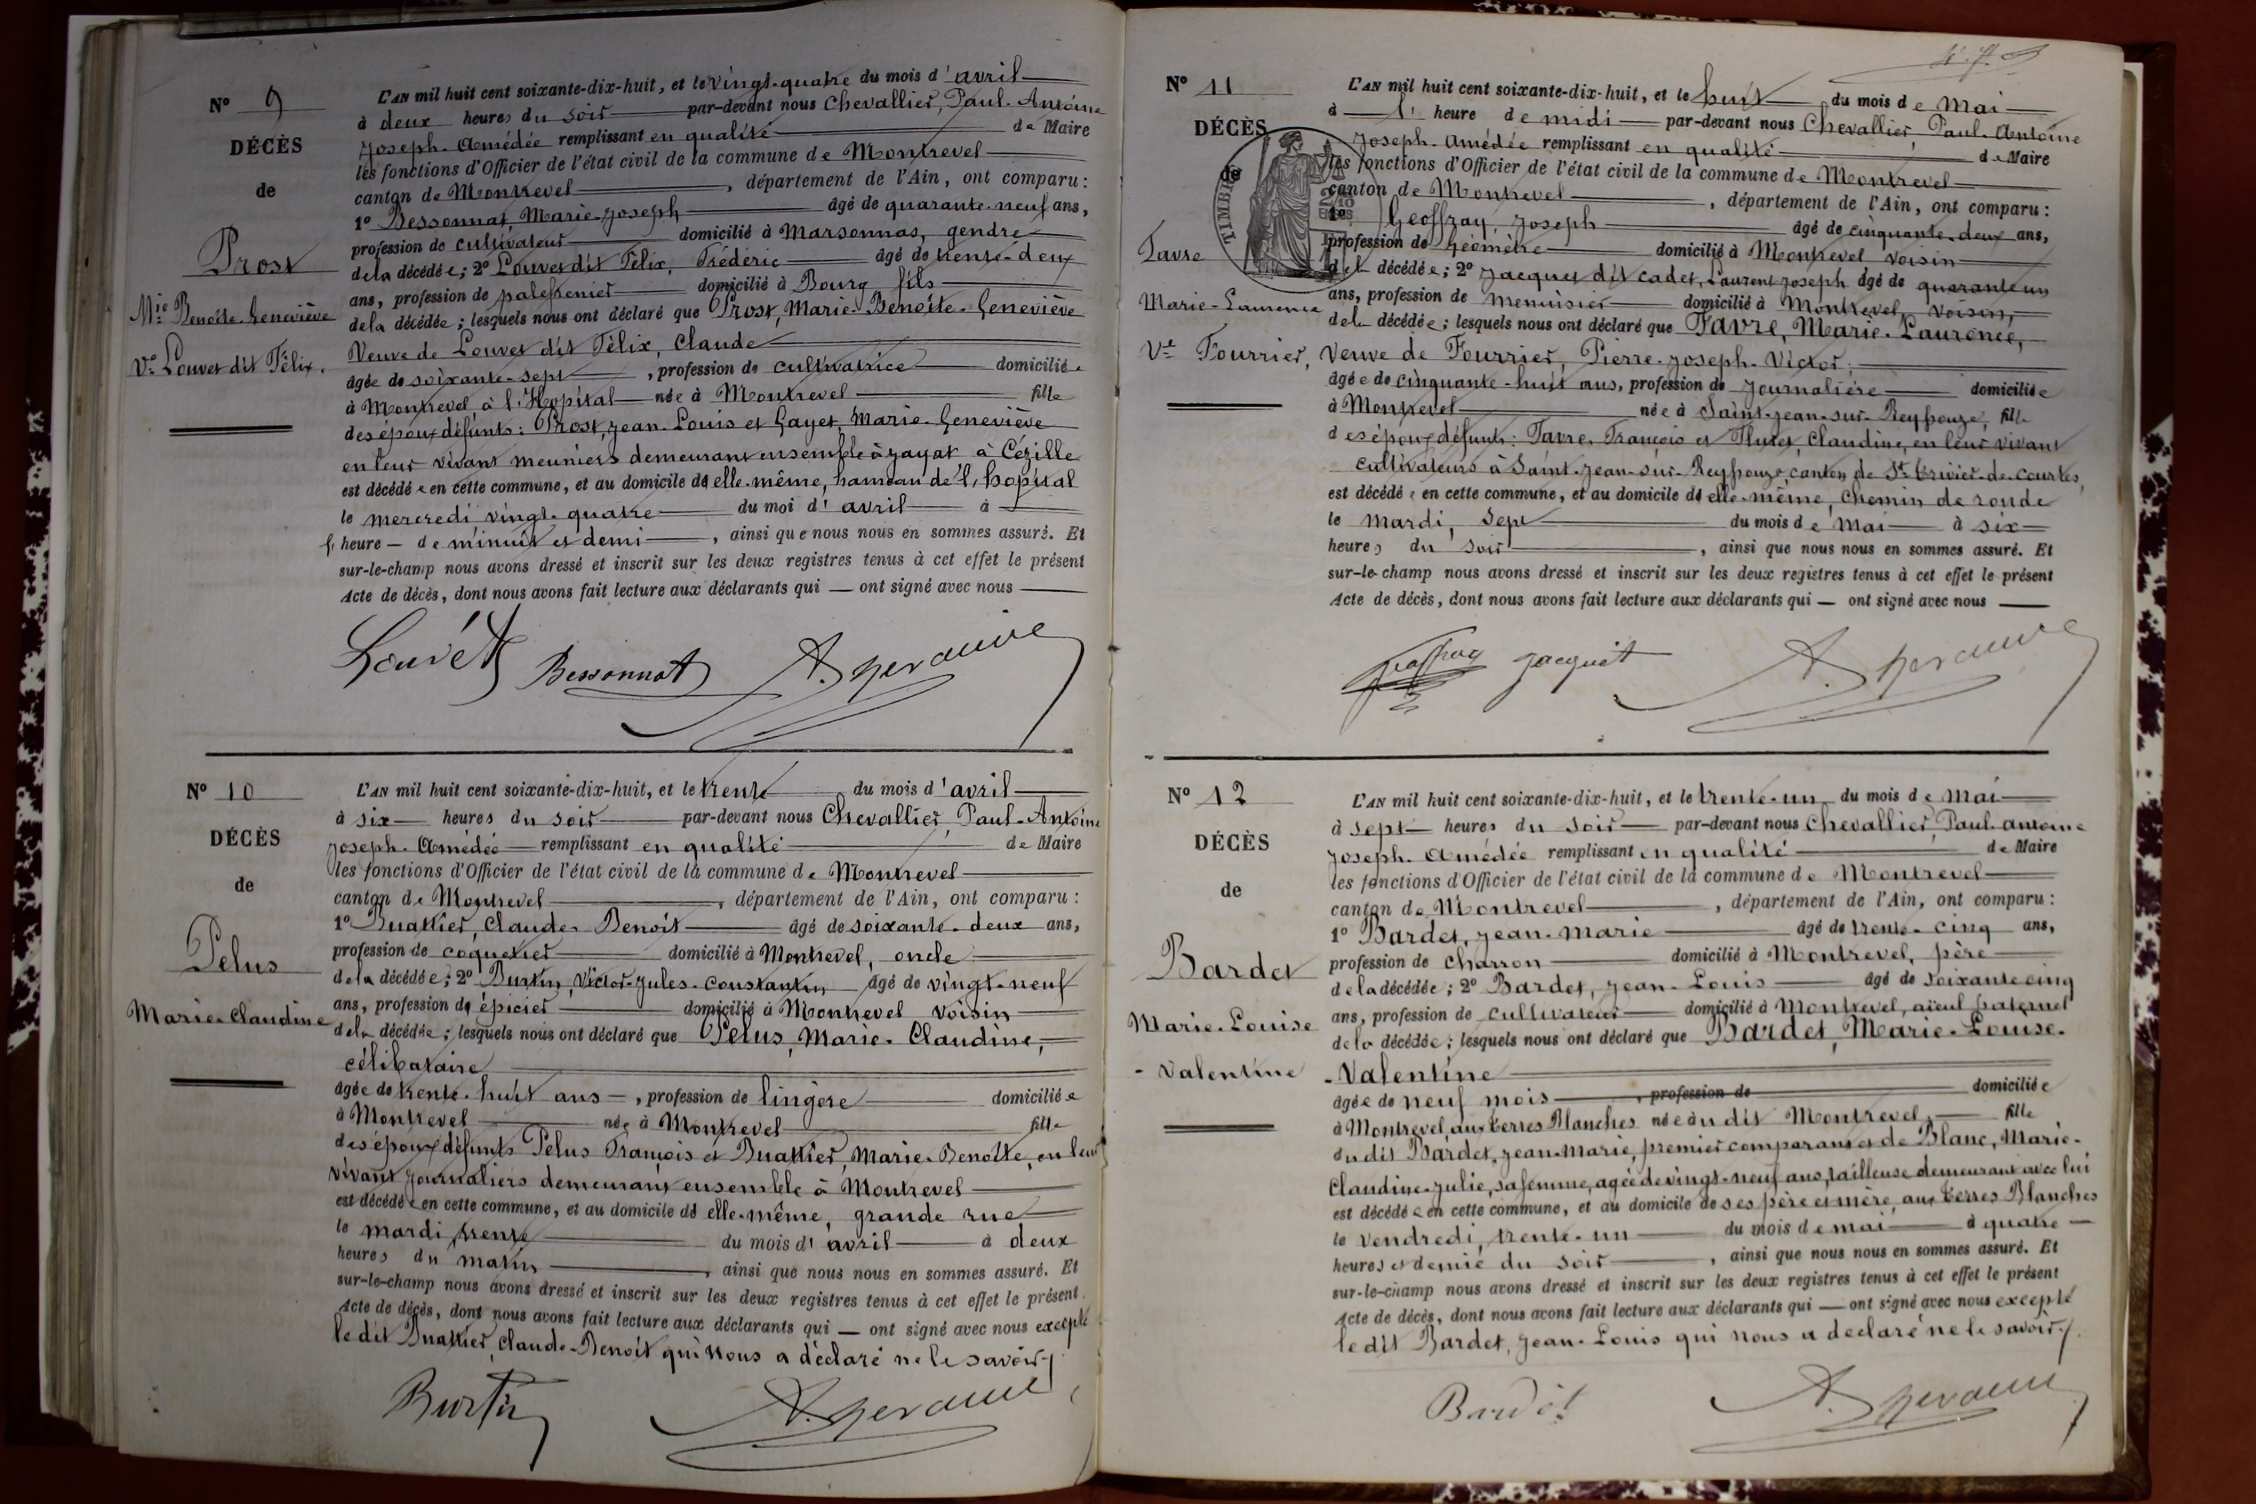 N° 9
DÉCÈS
de
Prost
Mie Benoîte Geneviève
Ve Louvet dit Félix.
L'AN mil huit cent soixante-dix-huit, et le vingt-quatre du mois d'avril
à deux heures du soir par-devant nous Chevallier, Paul-Antoine
Joseph-Amédée remplissant en qualité de Maire
les fonctions d'Officier de l'état civil de la commune de Montrevel
canton de Montrevel, département de l'Ain, ont comparu :
1° Bessonnat, Marie-Joseph âgé de quarante-neuf ans,
profession de cultivateur domicilié à Marsonnas, gendre
de la décédée; 2° Louvet dit Félix, Frédéric âgé de trente-deux
ans, profession de palefrenier domicilié à Bourg fils
de la décédée; lesquels nous ont déclaré que Prost, Marie-Benoîte-Geneviève
Veuve de Louvet dit Félix, Claude
âgée de soixante-sept, profession de cultivatrice domiciliée
à Montrevel à l'Hopital née à Montrevel fille
des époux défunts: Prost, Jean-Louis et Gayet, Marie-Geneviève
en leur vivant meuniers demeurant ensemble à Jayat à Cézille
est décédée en cette commune, et au domicile de elle-même, hameau de l'hopital
le mercredi vingt-quatre du moi d'avril à
heure de minuit et demi, ainsi que nous nous en sommes assuré. Et
sur-le-champ nous avons dressé et inscrit sur les deux registres tenus à cet effet le présent
Acte de décès, dont nous avons fait lecture aux déclarants qui — ont signé avec nous
Louvet Bessonnat
N° 10
DÉCÈS
de
Pelus
Marie-Claudine
L'AN mil huit cent soixante-dix-huit, et le trente du mois d'avril
à six heures du soir par-devant nous Chevallier, Paul-Antoine
Joseph-Amédée remplissant en qualité de Maire
les fonctions d'Officier de l'état civil de la commune de Montrevel
canton de Montrevel, département de l'Ain, ont comparu :
1° Buattier, Claude-Benoit âgé de soixante-deux ans,
profession de coquetier domicilié à Montrevel, oncle
de la décédée; 2° Burtin, Victor-Jules-Constantin âgé de vingt-neuf
ans, profession de épicier domicilié à Montrevel voisin
de la décédée; lesquels nous ont déclaré que Pelus, Marie-Claudine,
célibataire
âgée de trente-huit ans, profession de lingère domiciliée
à Montrevel née à Montrevel fille
des époux défunts Pelus François et Buattier, Marie-Benoîte, en leur
vivant journaliers demeurant ensemble à Montrevel
est décédée en cette commune, et au domicile de elle-même, grande rue
le mardi trente du mois d'avril à deux
heures du matin, ainsi que nous nous en sommes assuré. Et
sur-le-champ nous avons dressé et inscrit sur les deux registres tenus à cet effet le présent
Acte de décès, dont nous avons fait lecture aux déclarants qui — ont signé avec nous excepté
le dit Buattier, Claude-Benoît qui nous a déclaré ne le savoir
Burtin
N° 11
DÉCÈS
de
TIMBRE
Favre
Marie-Laurence
Ve Fourrier,
L'AN mil huit cent soixante-dix-huit, et le huit du mois de Mai
à l' heure de midi par-devant nous Chevallier, Paul-Antoine
Joseph-Amédée remplissant en qualité de Maire
les fonctions d'Officier de l'état civil de la commune de Montrevel
canton de Montrevel, département de l'Ain, ont comparu :
1° Geoffray, Joseph âgé de cinquante-deux ans,
profession de Géomètre domicilié à Montrevel voisin
de la décédée; 2° Jacquet dit cadet, Laurent Joseph âgé de quarante un
ans, profession de menuisier domicilié à Montrevel voisin,
de la décédée; lesquels nous ont déclaré que Favre, Marie-Laurence,
veuve de Fourrier, Pierre-Joseph-Victor,
âgée de cinquante-huit ans, profession de Journalière domiciliée
à Montrevel née à Saint-Jean-sur-Reyssouze, fille
des époux défunts: Favre, François et Flutet, Claudine, en leur vivant
cultivateurs à Saint-Jean-sur-Reyssouze, canton de St Trivier-de-Courtes,
est décédée en cette commune, et au domicile de elle-même, chemin de ronde
le mardi, sept du mois de Mai à six
heures du soir, ainsi que nous nous en sommes assuré. Et
sur-le-champ nous avons dressé et inscrit sur les deux registres tenus à cet effet le présent
Acte de décès, dont nous avons fait lecture aux déclarants qui — ont signé avec nous
Geoffray Jacquet
N° 12
DÉCÈS
de
Bardet
Marie-Louise
-Valentine
L'AN mil huit cent soixante-dix-huit, et le trente-un du mois de Mai
à sept heures du soir par-devant nous Chevallier, Paul-Antoine
Joseph-Amédée remplissant en qualité de Maire
les fonctions d'Officier de l'état civil de la commune de Montrevel
canton de Montrevel, département de l'Ain, ont comparu :
1° Bardet, Jean-Marie âgé de trente-cinq ans,
profession de charron domicilié à Montrevel, père
de la décédée; 2° Bardet, Jean-Louis âgé de soixante cinq
ans, profession de cultivateur domicilié à Montrevel, aïeul paternel
de la décédée; lesquels nous ont déclaré que Bardet, Marie-Louise-
-Valentine
âgée de neuf mois, profession de domiciliée
à Montrevel aux terres Blanches née au dit Montrevel, fille
du dit Bardet, Jean-Marie, premier comparant et de Blanc, Marie-
Claudine-Julie, sa femme, agée de vingt-neuf ans, tailleuse demeurant avec lui
est décédée en cette commune, et au domicile de ses père et mère, aux terres Blanches
le vendredi, trente-un du mois de mai à quatre
heures et demie du soir, ainsi que nous nous en sommes assuré. Et
sur-le-champ nous avons dressé et inscrit sur les deux registres tenus à cet effet le présent
Acte de décès, dont nous avons fait lecture aux déclarants qui — ont signé avec nous excepté
le dit Bardet, Jean-Louis qui nous a déclaré ne le savoir
Bardet